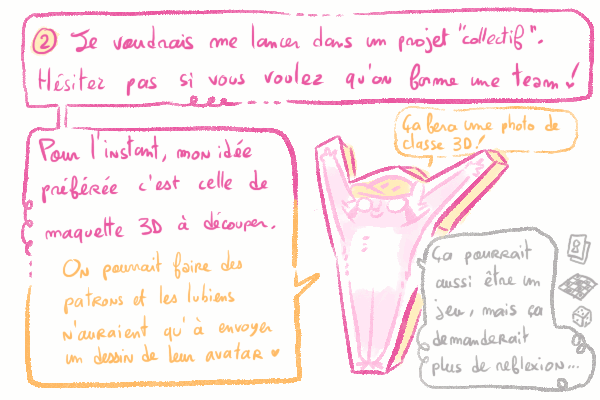 2 Je voudrais me lancer dans un projet "collectif".
Hésitez pas si vous voulez qu'on forme une team !
Ça fera une photo de
classe 3D !
Pour l'instant, mon idée
préférée c'est celle de
maquette 3D à découper.
On pourrait faire des
patrons et les lubiens
n'auraient qu'à envoyer
un dessin de leur avatar ♥
Ça pourrait
aussi être un
jeu, mais ça
demanderait
plus de reflexion...